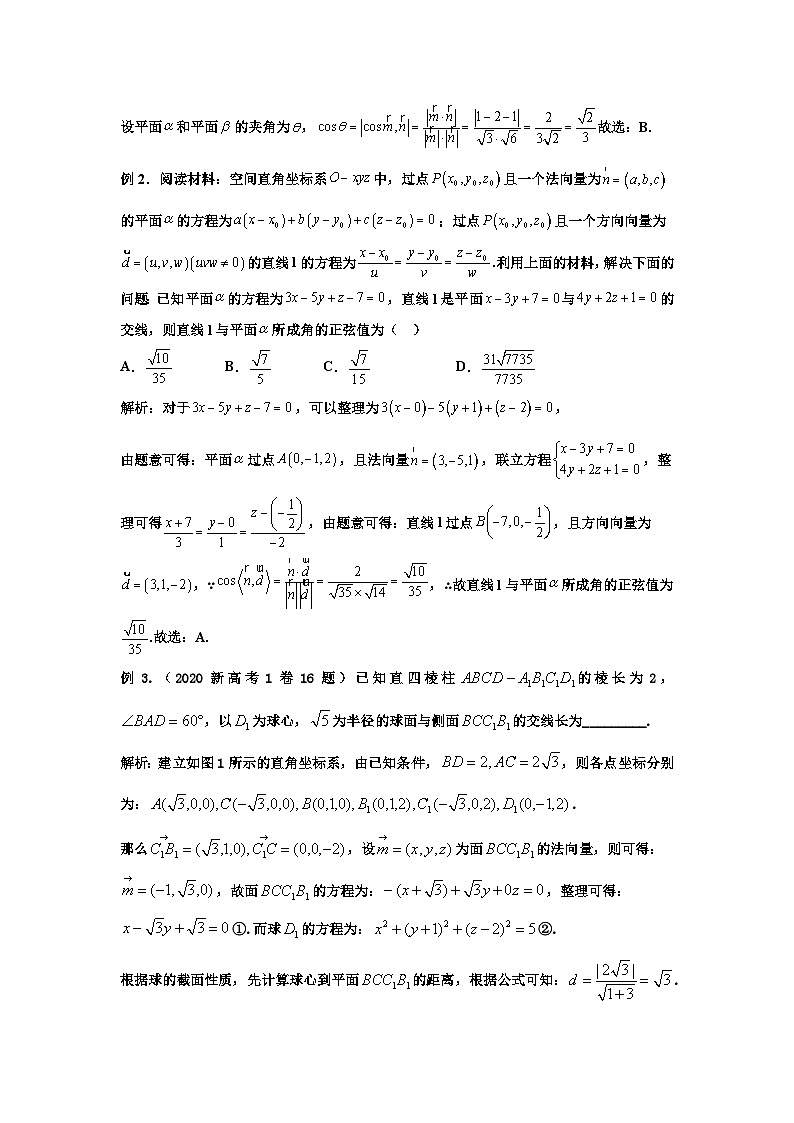 设平面α和平面β的夹角为θ，cosθ = |cos m,n| = |m·n| / |m|·|n| = |1−2−1| / √3·√6 = 2 / 3√2 = √2 / 3 故选：B.
例 2．阅读材料：空间直角坐标系O−xyz中，过点P(x₀,y₀,z₀)且一个法向量为n=(a,b,c)
的平面α的方程为a(x−x₀)+b(y−y₀)+c(z−z₀)=0；过点P(x₀,y₀,z₀)且一个方向向量为
d=(u,v,w)(uvw≠0)的直线 l 的方程为(x−x₀)/u = (y−y₀)/v = (z−z₀)/w.利用上面的材料,解决下面的
问题 已知平面α的方程为3x−5y+z−7=0，直线 l 是平面x−3y+7=0与4y+2z+1=0的
交线，则直线 l 与平面α所成角的正弦值为（ ）
A．√10/35 B．√7/5 C．√7/15 D．31√7735/7735
解析：对于3x−5y+z−7=0，可以整理为3(x−0)−5(y+1)+(z−2)=0，
由题意可得：平面α过点A(0,−1,2)，且法向量n=(3,−5,1)，联立方程{x−3y+7=0 4y+2z+1=0，整
理可得(x+7)/3 = (y−0)/1 = (z−(−1/2))/−2，由题意可得：直线 l 过点B(−7,0,−1/2)，且方向向量为
d=(3,1,−2)，∵cos⟨n,d⟩ = n·d / |n||d| = 2 / √35×√14 = √10/35，∴故直线 l 与平面α所成角的正弦值为
√10/35.故选：A.
例 3.（2020 新高考 1 卷 16 题）已知直四棱柱ABCD−A₁B₁C₁D₁的棱长为 2，
∠BAD=60°，以D₁为球心，√5为半径的球面与侧面BCC₁B₁的交线长为_________.
解析：建立如图 1 所示的直角坐标系，由已知条件，BD=2,AC=2√3，则各点坐标分别
为：A(√3,0,0),C(−√3,0,0),B(0,1,0),B₁(0,1,2),C₁(−√3,0,2),D₁(0,−1,2).
那么C₁B₁→=(√3,1,0),C₁C→=(0,0,−2)，设m→=(x,y,z)为面BCC₁B₁的法向量，则可得：
m→=(−1,√3,0)，故面BCC₁B₁的方程为：−(x+√3)+√3y+0z=0，整理可得：
x−√3y+√3=0①.而球D₁的方程为：x²+(y+1)²+(z−2)²=5②.
根据球的截面性质，先计算球心到平面BCC₁B₁的距离，根据公式可知：d=|2√3|/√(1+3)=√3.